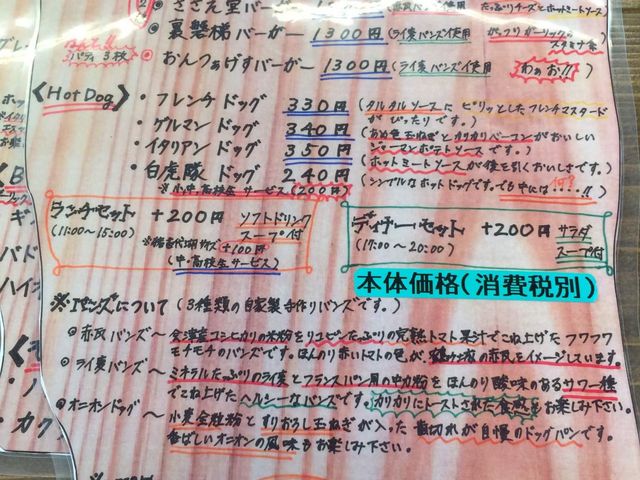 ・さざえ堂バーガー 1300円
・裏磐梯バーガー 1300円 (ライ麦バンズ使用
・おんつぁげすバーガー 1300円 (ライ麦バンズ使用 わぉ!!
たっぷりチーズとホットミートソース)
がっつりガーリックの
スタミナ系
パティ3枚
<Hot Dog>
・フレンチドッグ 330円 (タルタルソースにピリッとしたフレンチマスタード
がぴったりです。)
・ゲルマンドッグ 340円 (あめ色玉ねぎとカリカリベーコンがおいしい
ジャーマンポテトソースです。)
・イタリアンドッグ 350円 (ホットミートソースが後を引くおいしさです。)
・白虎隊ドッグ 240円 (シンプルなホットドッグです。でも中には何と・・・・!!)
※小中、高校生サービス(200円)
ランチセット +200円 ソフトドリンク
(11:00〜15:00) スープ付
+100円
(中・高校生サービス)
ディナーセット +200円 サラダ
(17:00〜20:00) スープ付
本体価格(消費税別)
※バンズについて (3種類の自家製手作りバンズです。)
◎赤瓦バンズ〜会津産コシヒカリの米粉をリュビエたっぷりの完熟トマト果汁でこね上げたフワフワ
モチモチのバンズです。ほんのり赤いトマトの色が、鶴ヶ城の赤瓦をイメージしています。
◎ライ麦バンズ〜ミネラルたっぷりのライ麦とフランスパン用の中力粉をほんのり酸味のあるサワー種
でこね上げたヘルシーなバンズです。カリカリにトーストされた食感をお楽しみ下さい。
◎オニオンドッグ〜小麦全粒粉とすりおろし玉ねぎが入った歯切れが自慢のドッグパンです。
香ばしいオニオンの風味もお楽しみ下さい。